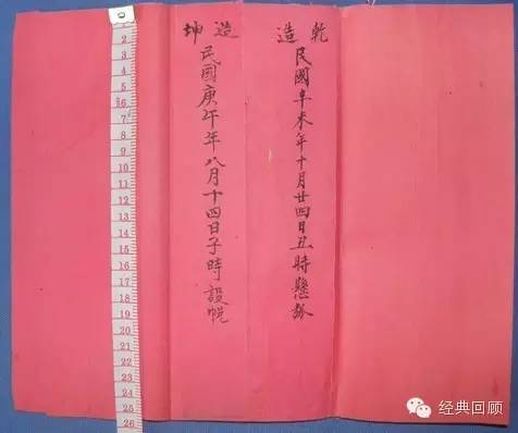 乾造
民國辛未年十月廿四日丑時懸弧
坤造
民國庚午年八月十四日子時設帨
1
2
3
4
5
6
7
8
9
10
11
12
13
14
15
16
17
18
19
20
21
22
23
24
25
26
经典回顾